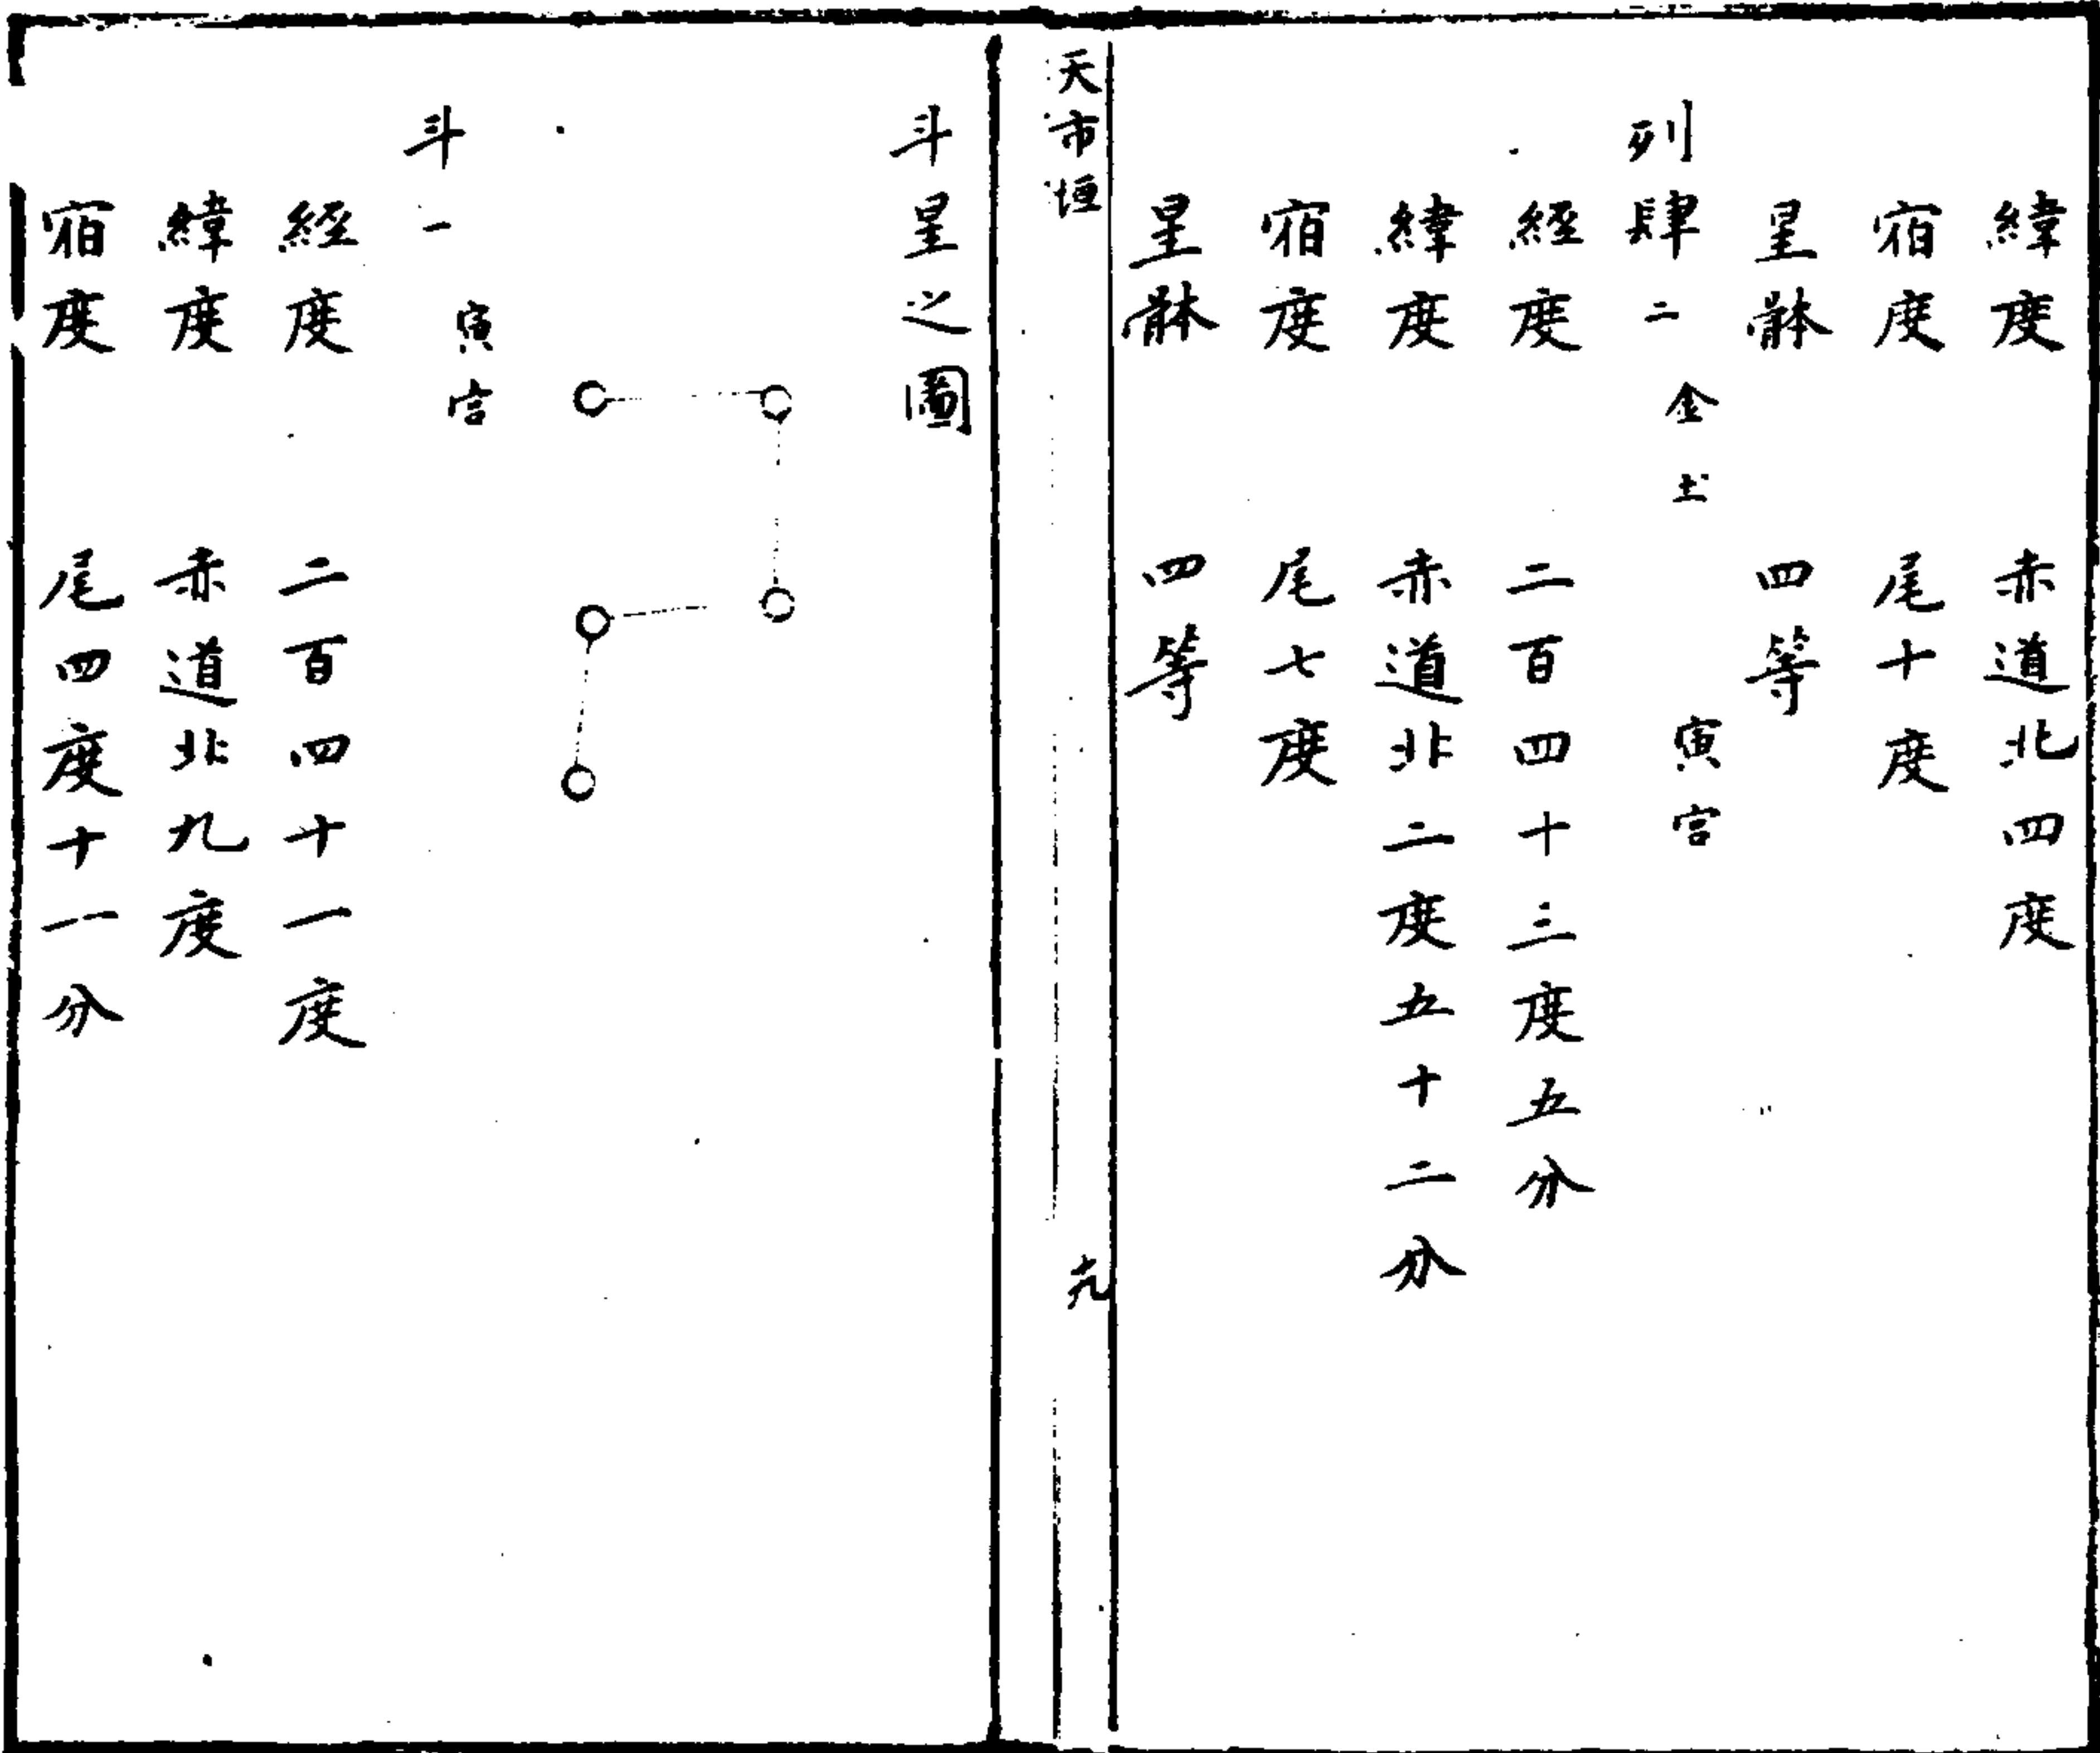 緯度　赤道北四度
宿度　尾十度
星躰　四等
列肆二　金土　寅宮
經度　二百四十三度五分
緯度　赤道北二度五十二分
宿度　尾七度
星躰　四等
天市垣
斗星之圖
斗一　寅宮
經度　二百四十一度
緯度　赤道北九度
宿度　尾四度十一分